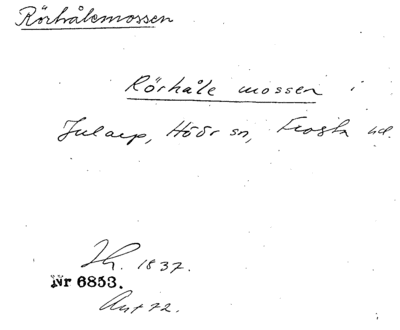 Rörhålemossen
Rörhåle mossen i
Jularp, Höör sn, Frosta hd.
Jh. 1837.
Nr 6853.
Ant 72.